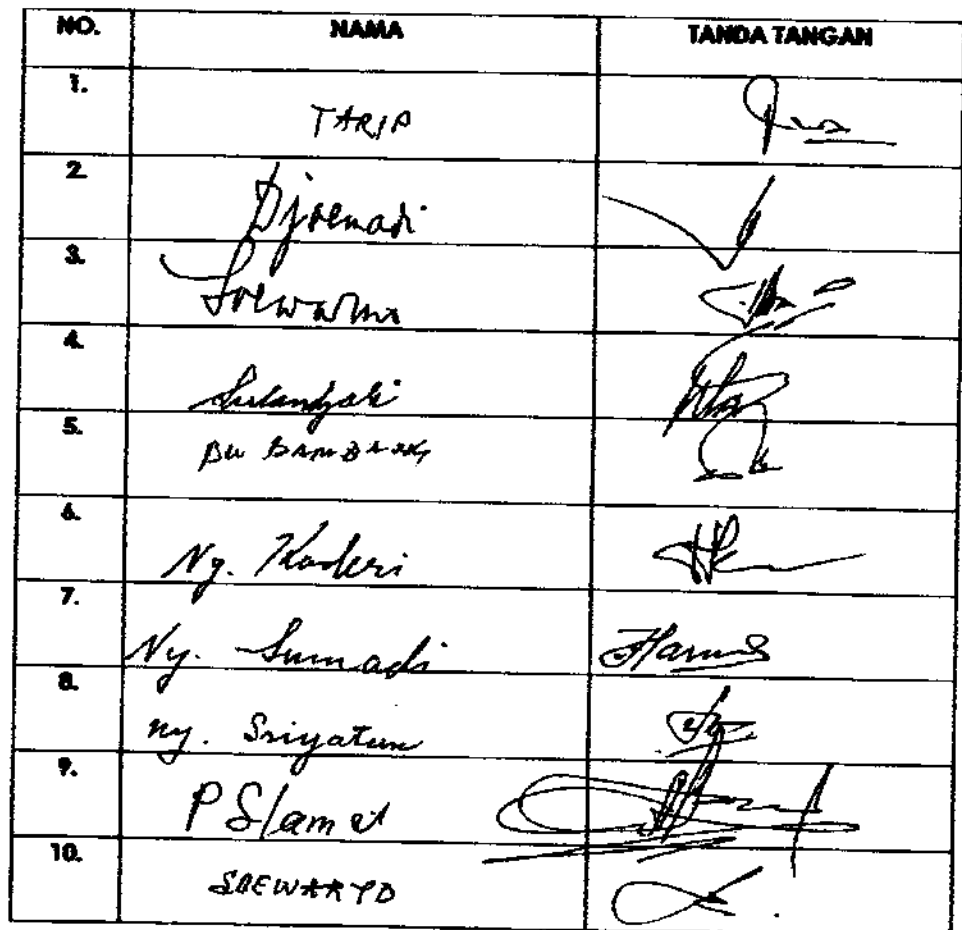 NO. NAMA TANDA TANGAN
1. TARIP
2. Djoemadi
3. Soewarno
4. Sulandjari
5. BU BAMBANG
6. Ny. Kaderi
7. Ny. Sumadi
8. ny. Sriyatun
9. P Slamet
10. SOEWARYO